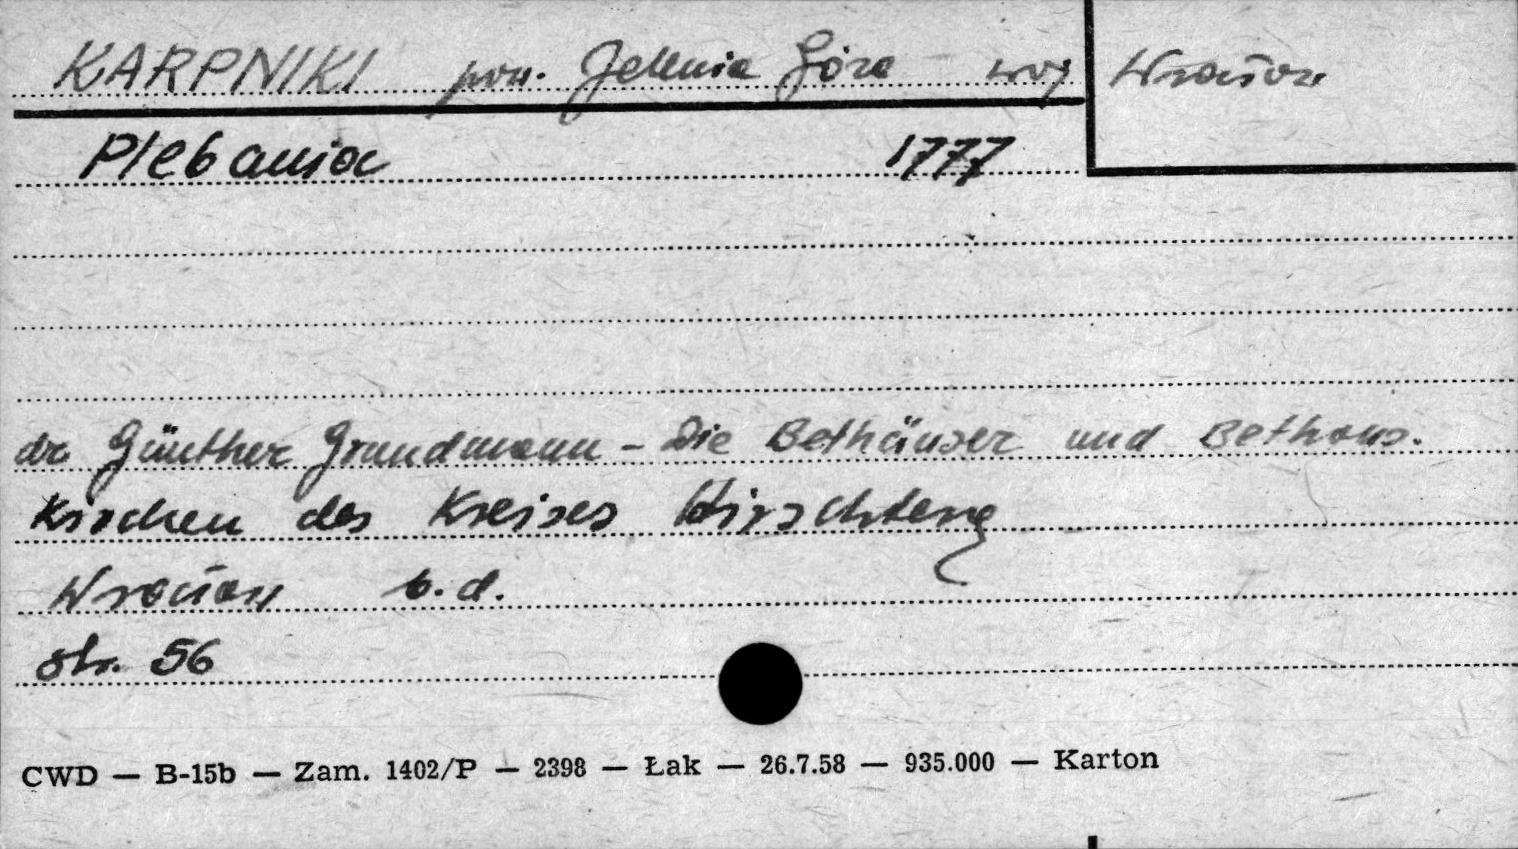 KARPNIKI pow. Jelenia Góra woj Wrocław
Plebania 1777
dr Günther Grundmann - Die Bethäuser und Bethaus.
kirchen des Kreises Hirschberg
Wrocław b.d.
str. 56
CWD — B-15b — Zam. 1402/P — 2398 — Łak — 26.7.58 — 935.000 — Karton